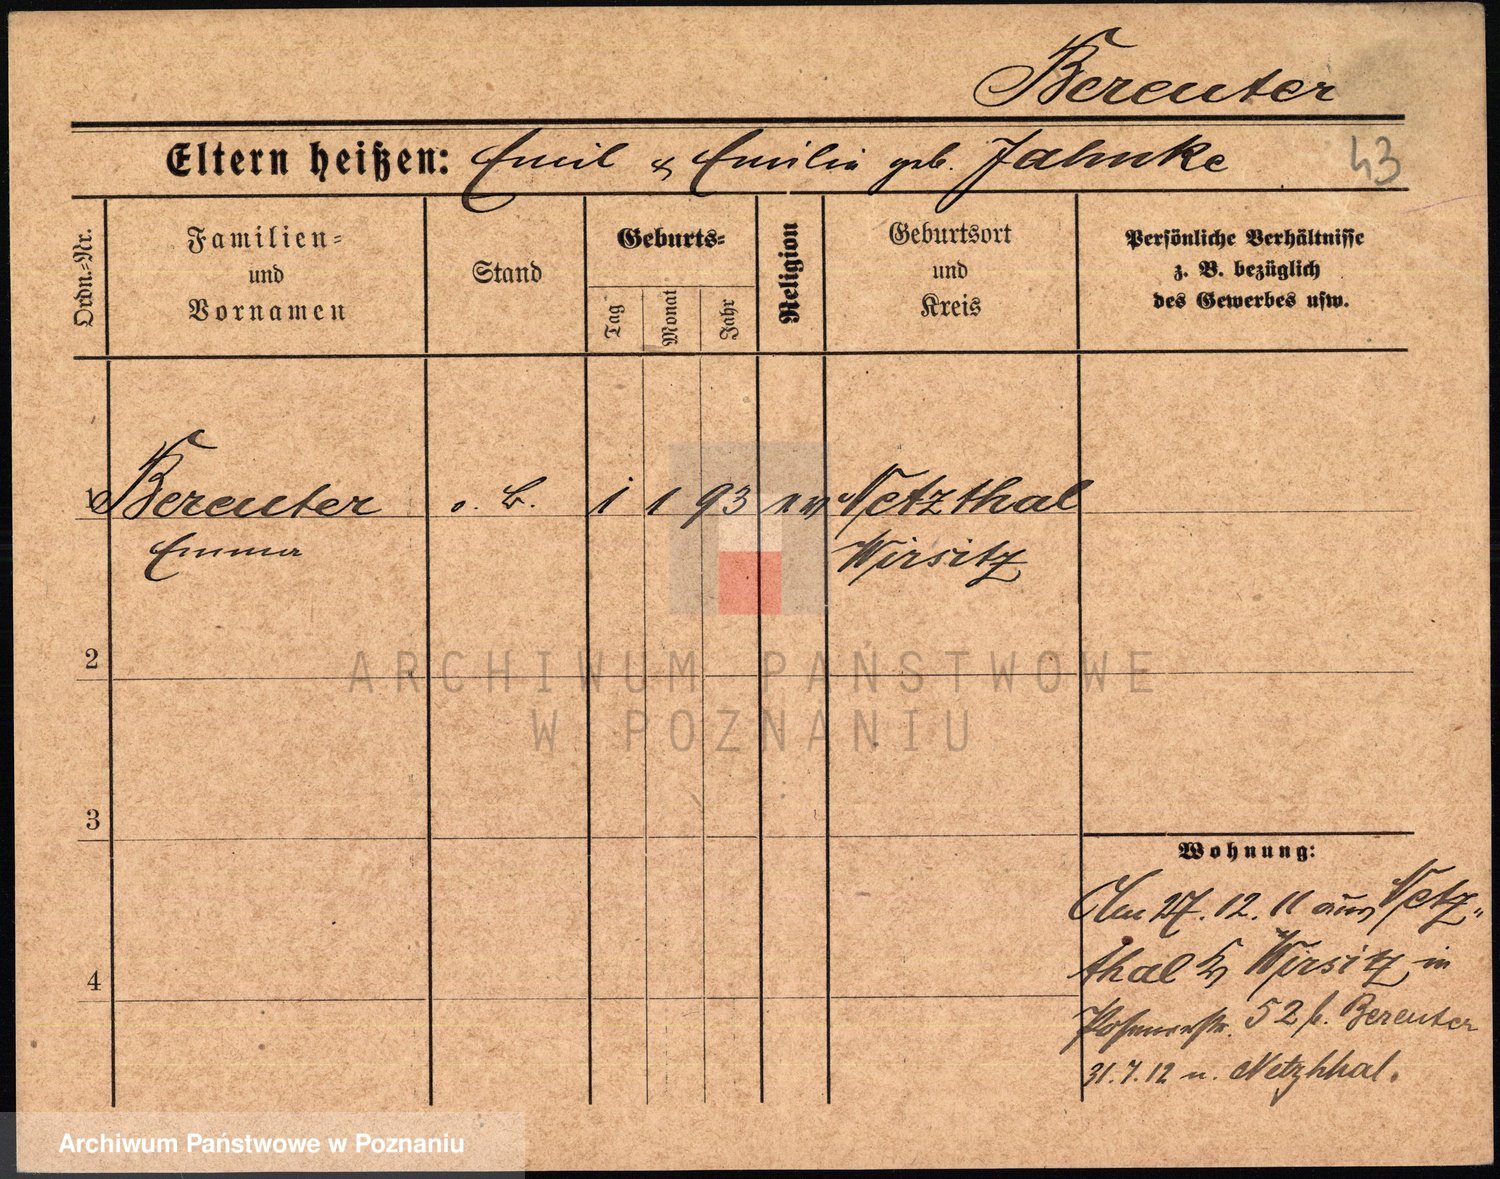 Bereuter
Eltern heißen: Emil & Emilie geb. Jahnke
43
Ordn.=Nr.
Familien=
und
Vornamen
Stand
Geburts=
Tag
Monat
Jahr
Religion
Geburtsort
und
Kreis
Persönliche Verhältnisse
z. B. bezüglich
des Gewerbes usw.
1 Bereuter o. B. 1 1 93 Netzthal
Emma Wirsitz
2
3
4
ARCHIWUM PAŃSTWOWE
W POZNANIU
Wohnung:
Am 27. 12. 11 aus Netz„
thal Kr Wirsitz in
Posenerstr. 52 b. Bereuter
31.7.12 n. Netzhhal.
Archiwum Państwowe w Poznaniu